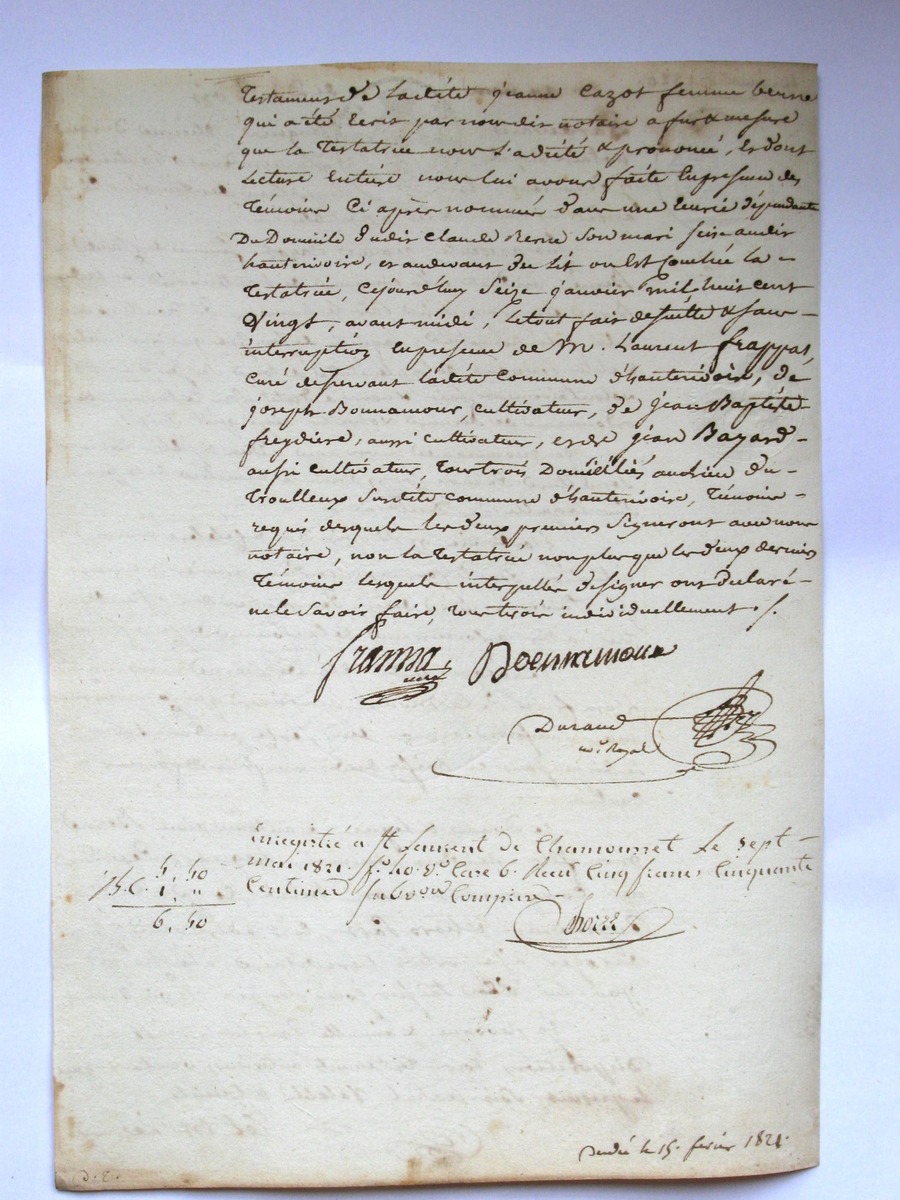 Testament de ladite jeanne Cazot femme berne
qui a été Ecrit par nous dit notaire a fur & mesure
que la Testatrice nous l'a dicté & prononcé, Et dont
Lecture Entiere nous lui avons faite En presence des
Témoins Ci après nommés dans une Ecurie dépendante
Du Domicile dudit Claude Berne Son mari Scise audit
hauterivoire, et audevant du Lit ou Est Couchée la
Testatrice, Cejourd'huy Seize janvier mil huit cent
Vingt, avant midi, Le tout fait de suitte & sans
interruption En presence de M. Laurent frappas,
Curé desservant ladite Commune d'hauterivoire, de
joseph Bonnamour, cultivateur, de jean Baptiste
freydiere, aussi cultivateur, et de jean Bazard
aussi cultivateur, tous trois Domiciliés au Lieu du
Troulleux Susdite commune d'hauterivoire, Témoins
requis desquels les deux premiers Signeront avec nous
notaire, non la Testatrice non plus que les deux derniers
Témoins lesquels interpellés de signer ont déclaré
ne le Savoir faire, tous trois individuellement ./.
Bonnamour
Durand
no.re Royal
Enregistré a St Laurent de Chamousset Le Sept
mai 1821. f.o 40. v.o Case 6. Reçu Cinq francs Cinquante
Centimes Compris
5, 50
1, "
6, 50
le 15. fevrier 1821.
D. E.